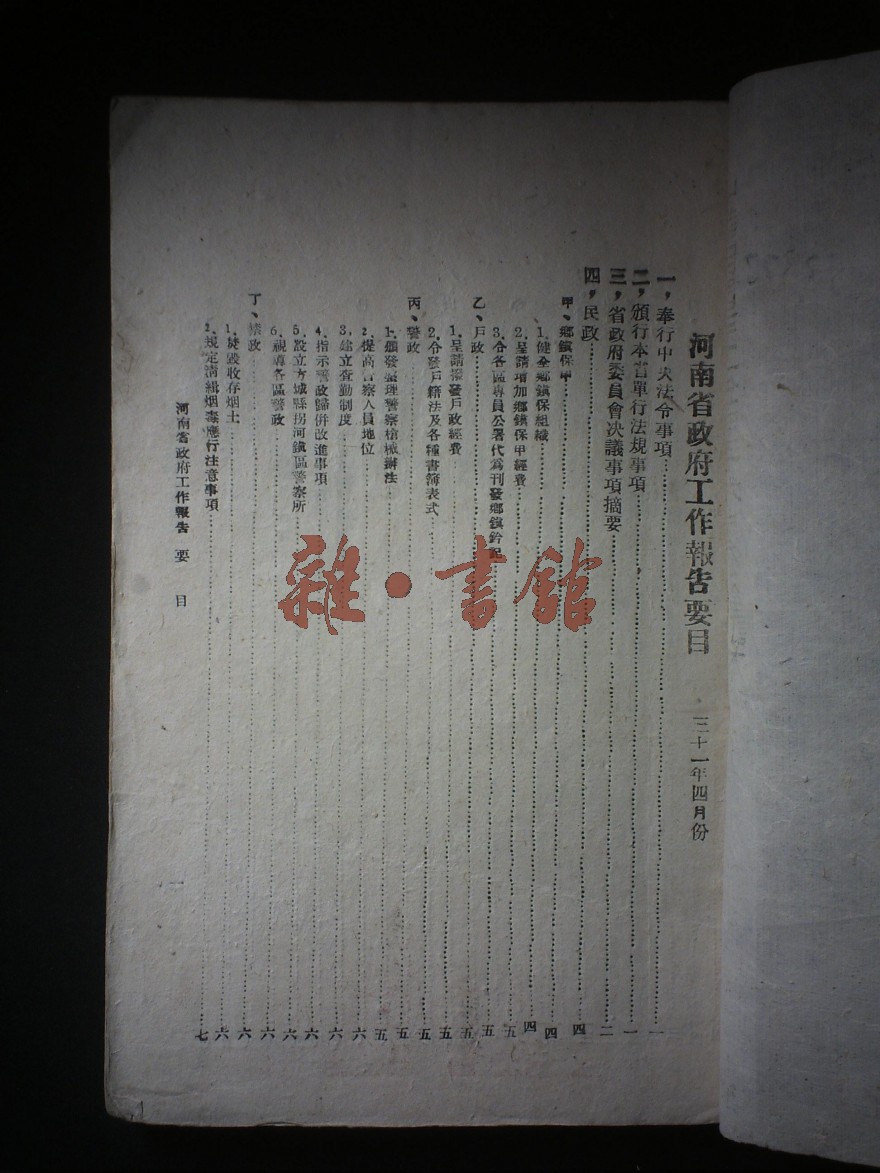 河南省政府工作報告要目 三十一年四月份
一，奉行中央法令事項………一
二，頒行本省單行法規事項………一
三，省政府委員會決議事項摘要………二
四，民政………四
甲、鄉鎮保甲………四
1.健全鄉鎮保組織………四
2.呈請增加鄉鎮保甲經費………五
3.令各區專員公署代為刊發鄉鎮鈐記………五
乙、戶政………五
1.呈請撥發戶政經費………五
2.令發戶籍法及各種書簿表式………五
丙、警政………五
1.頒發整理警察槍械辦法………五
2.提高警察人員地位………六
3.建立查勤制度………六
4.指示警政歸併改進事項………六
5.設立方城縣拐河鎮區警察所………六
6.視導各區警政………六
丁、禁政………六
1.焚毀收存烟土………六
2.規定清緝烟毒應行注意事項………七
河南省政府工作報告 要目 一
雜·書館